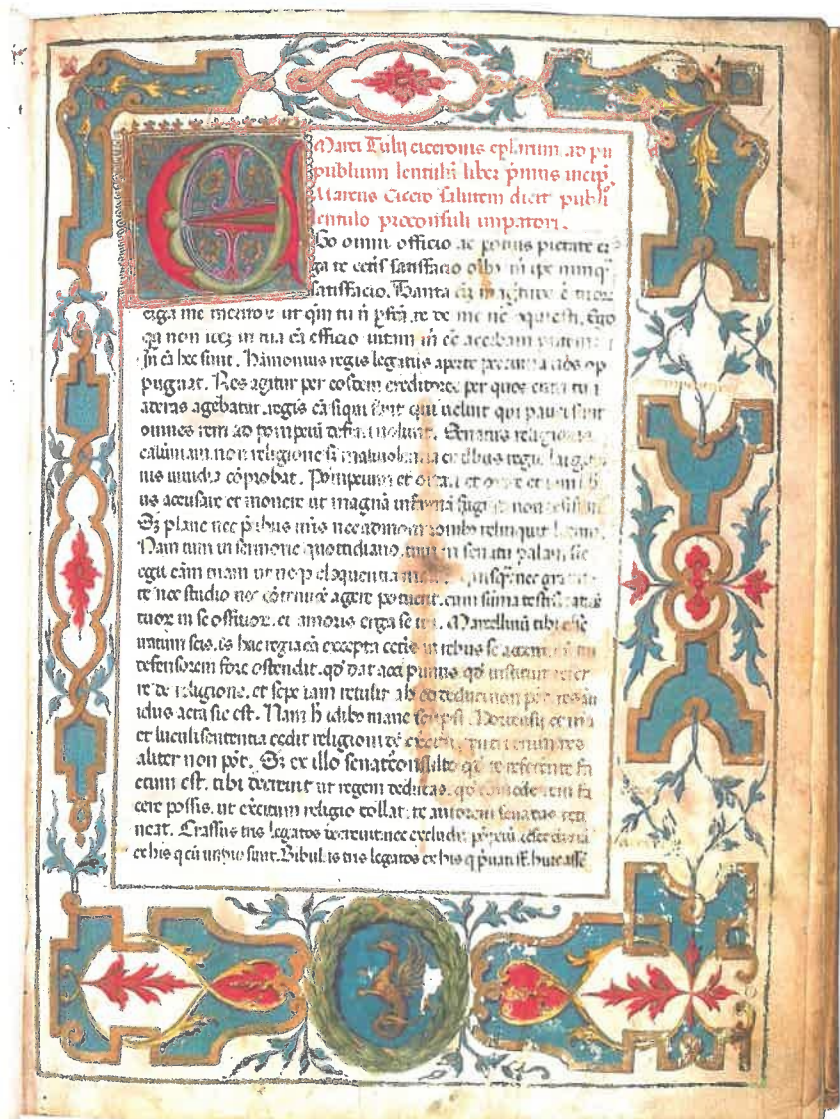 Marci Tulii ciceronis eplarum ad pu
publium lentulũ liber p̃mus incip̃.
Marcus Cicero salutem dicit publi
lentulo proconsuli impatori.
EGo omni officio ac potius pietate er
ga te ceteris satisfacio oĩbus m̃ ipe nunq̃
satisfacio. Tanta eĩ magnitudo ẽ tuor
erga me meritor ut qm̃ tu ñ pfcã re de me nõ Ego
qa non idẽ in tua cã efficio uitam m̃ eẽ acerbam putem
In cã hec sunt. Hãmonius regis legatus aperte pecunia nos op
pugnat. Res agitur per eosdem creditores per quos cum tu
aderas agebatur. regis cã siqui sunt qui uelint qui pauci sunt
omnes rem ad pompeiũ deferri uolunt. Senatus religionis
calũniam. non religione s; maliuolentia et illius regie largitio
nis inuidia cõprobat. Pompeium et
us accusare et monere ut magnã infamiã fugiat non
S; plane nec p̃cibus nr̃is nec admonitionibus relinquit locum.
Nam cum in sermone quottidiano. tum in senatu palam sic
egit cãm tuam ut neq; eloquentia quisq̃ nec grauita
te nec studio nec cõtentione agere potuerit. cum sũma testificatione
tuor in se offitior. et amoris erga te sui. Marcellinũ tibi esse
iratum scis. is hac regia cã excepta ceteris in rebus se acerrimũ tui
defensorem fore ostendit. qd̃ dat accipimus qd̃ instituit refer
re de religione. et sepe iam retulit ab eo deduci non pot̃. res an
idus acta sic est. Nam h̃ idibus mane scripsi. Hortensii et mea
et luculi sententia cedit religioni de exercitu. teneri enim res
aliter non põt. S; ex illo senatẽconsulto qd̃ te referente fa
ctum est. tibi decernit ut regem reducas. qd̃ commode rem fa
cere possis. ut exercitum religio tollat. te autorem senatus reti
neat. Crassus tris legatos decreuit. nec excludit põpeiũ. censet enim
ex his q cũ imperio sunt. Bibulus tris legatos ex his q p̃uati st̃. huic asse